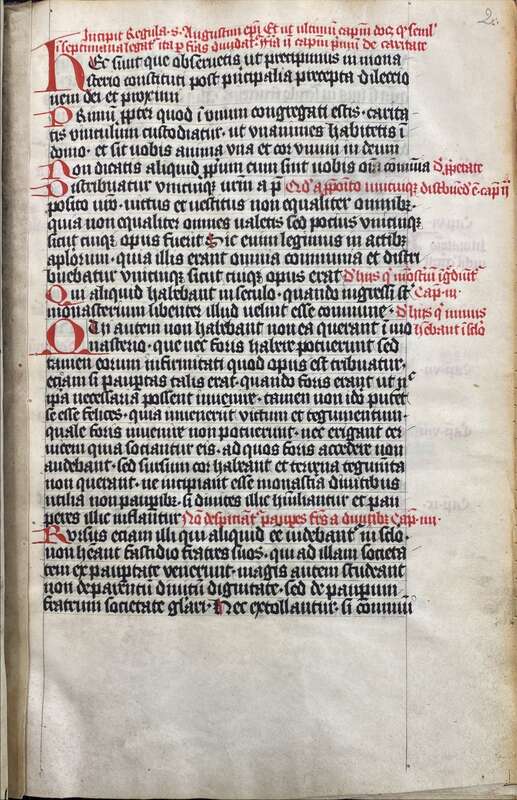 2.
Incipit Regula s. Augustini ep̄i Et ut ultimū cap̄m doc& q̄ semel
ī septimana legat̄ ita p̄ frīas diuidat̄ p̄mū de caritate
Hec sunt que obseruetis ut precipimus in mona
sterio constituti post pincipalia precepta dilectio
nem dei et proximi
Primū ppter quod ī vnum congregati estis · carita
tis vinculum custodiatur · ut vnanimes habitetis ī
domo · et sit vobis anima vna et cor vnum in deum
Non dicatis aliquid ppium cum sint vobis oīa comuna D ppetate
Distribuatur vnicuiqȝ vrm a p Qd a pposito vnicuiqȝ distbuend ē cap ij
posito vro · victus et vestitus non equaliter omnibȝ ·
quia non equaliter omnes valetis sed pocius vnicuiqȝ
sicut cuiqȝ opus fuerit Sic enim legimus in actibȝ
aplorum · quia illis erant omnia communia et distri
buebatur vnicuiqȝ sicut cuiqȝ opus erat D hiis q mostiū īgdiunt̄
Qui aliquid habebant in seculo · quando ingressi st̄ Cap · iij ·
monasterium libenter illud velint esse commune · D hiis q nimis
Qui autem non habebant non ea querant ī mo hebant ī sclo
nasterio · que nec foris habere potuerunt sed
tamen eorum infirmitati quod opus est tribuatur ·
eciam si paupertas talis erat · quando foris erant ut n
ipa necessaria possent inuenire · tamen non ido putēt
se esse felices · quia inuenerunt victum et tegumentum ·
quale foris inuenire non potuerunt · nec erigant cer
uicem quia sociantur eis · ad quos foris accedere non
audebant · sed sursum cor habeant et terrena
non querant · ne incipiant esse monastia diuitibus
vtilia non pauperibȝ · si diuites illic hūiliantur et pau
peres illic inflantur Nō despiciāt pauperes frēs a diuitibȝ Cap · iiij ·
Rursus eciam illi qui aliquid eē uidebant̄ in sclo ·
non heant fastidio fratres suos · qui ad illam societa
tem ex paupertate venerunt · magis autem studeant
non de parentū diuitū dignitate · sed de pauperum
fratrum societate glāri · Nec extollantur · si comuni